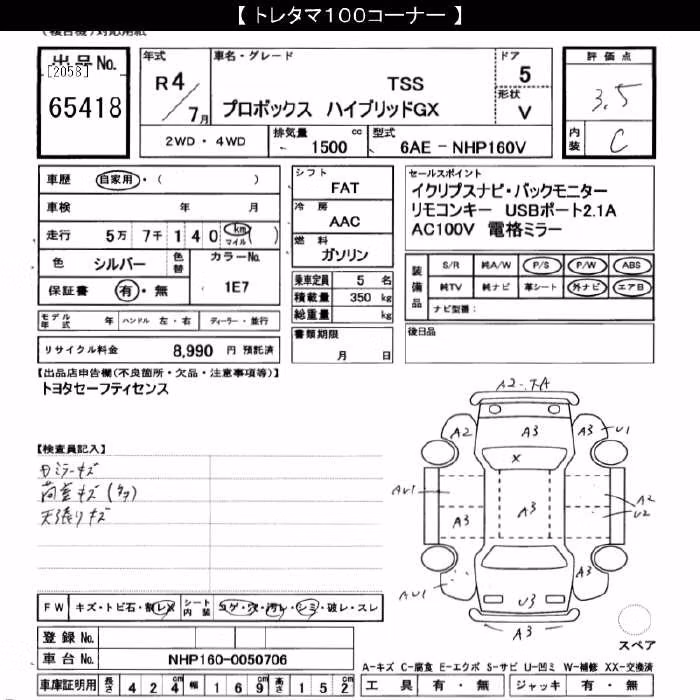 【 トレタマ100コーナー 】
(複合機)対応用紙
出品No.
[2058]
65418
年式
R4/7月
車名・グレード
TSS
プロボックス ハイブリッドGX
ドア
5
形状
V
評価点
3.5
内装
C
2WD ・ 4WD
排気量 1500 cc
型式 6AE - NHP160V
車歴 自家用・( )
車検 年 月
走行 5万 7千 1 4 0 km マイル ( )
色 シルバー 色替 カラーNo.
保証書 有・無 1E7
モデル年式 年 ハンドル 左・右 ディーラー・並行
リサイクル料金 8,990 円 預託済
シフト
FAT
冷房
AAC
燃料
ガソリン
乗車定員 5 名
積載量 350 kg
総重量 kg
書類期限
月 日
セールスポイント
イクリプスナビ・バックモニター
リモコンキー USBポート2.1A
AC100V 電格ミラー
装備品
S/R 純A/W P/S P/W ABS
純TV 純ナビ 革シート 外ナビ エアB
ナビ型番:
後日品
【出品店申告欄(不良箇所・欠品・注意事項等)】
トヨタセーフティセンス
【検査員記入】
ミラーキズ
荷室キズ(多)
天張りキズ
A2
A3
A3
U1
X
AU1
A3
A3
A2
U2
AU1
U3
A3
A3
スペア
FW キズ・トビ石・割レ× シート内装 コゲ・穴・汚レ・シミ・破レ・スレ
登録 No.
車台 No. NHP160-0050706
車庫証明用 長さ 4 2 4 cm 幅 1 6 9 cm 高さ 1 5 2 cm
A-キズ C-腐食 E-エクボ S-サビ U-凹ミ W-補修 XX-交換済
工具 有・無 ジャッキ 有・無